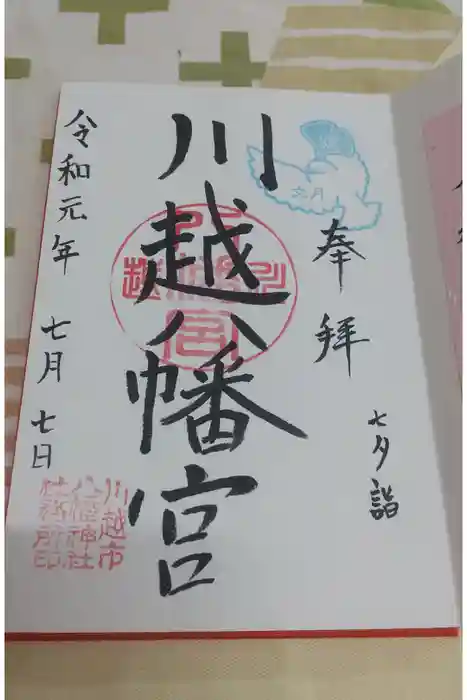 文月
奉拝
七夕詣
川越八幡宮
令和元年 七月 七日
川越市
八幡神社
社務所印